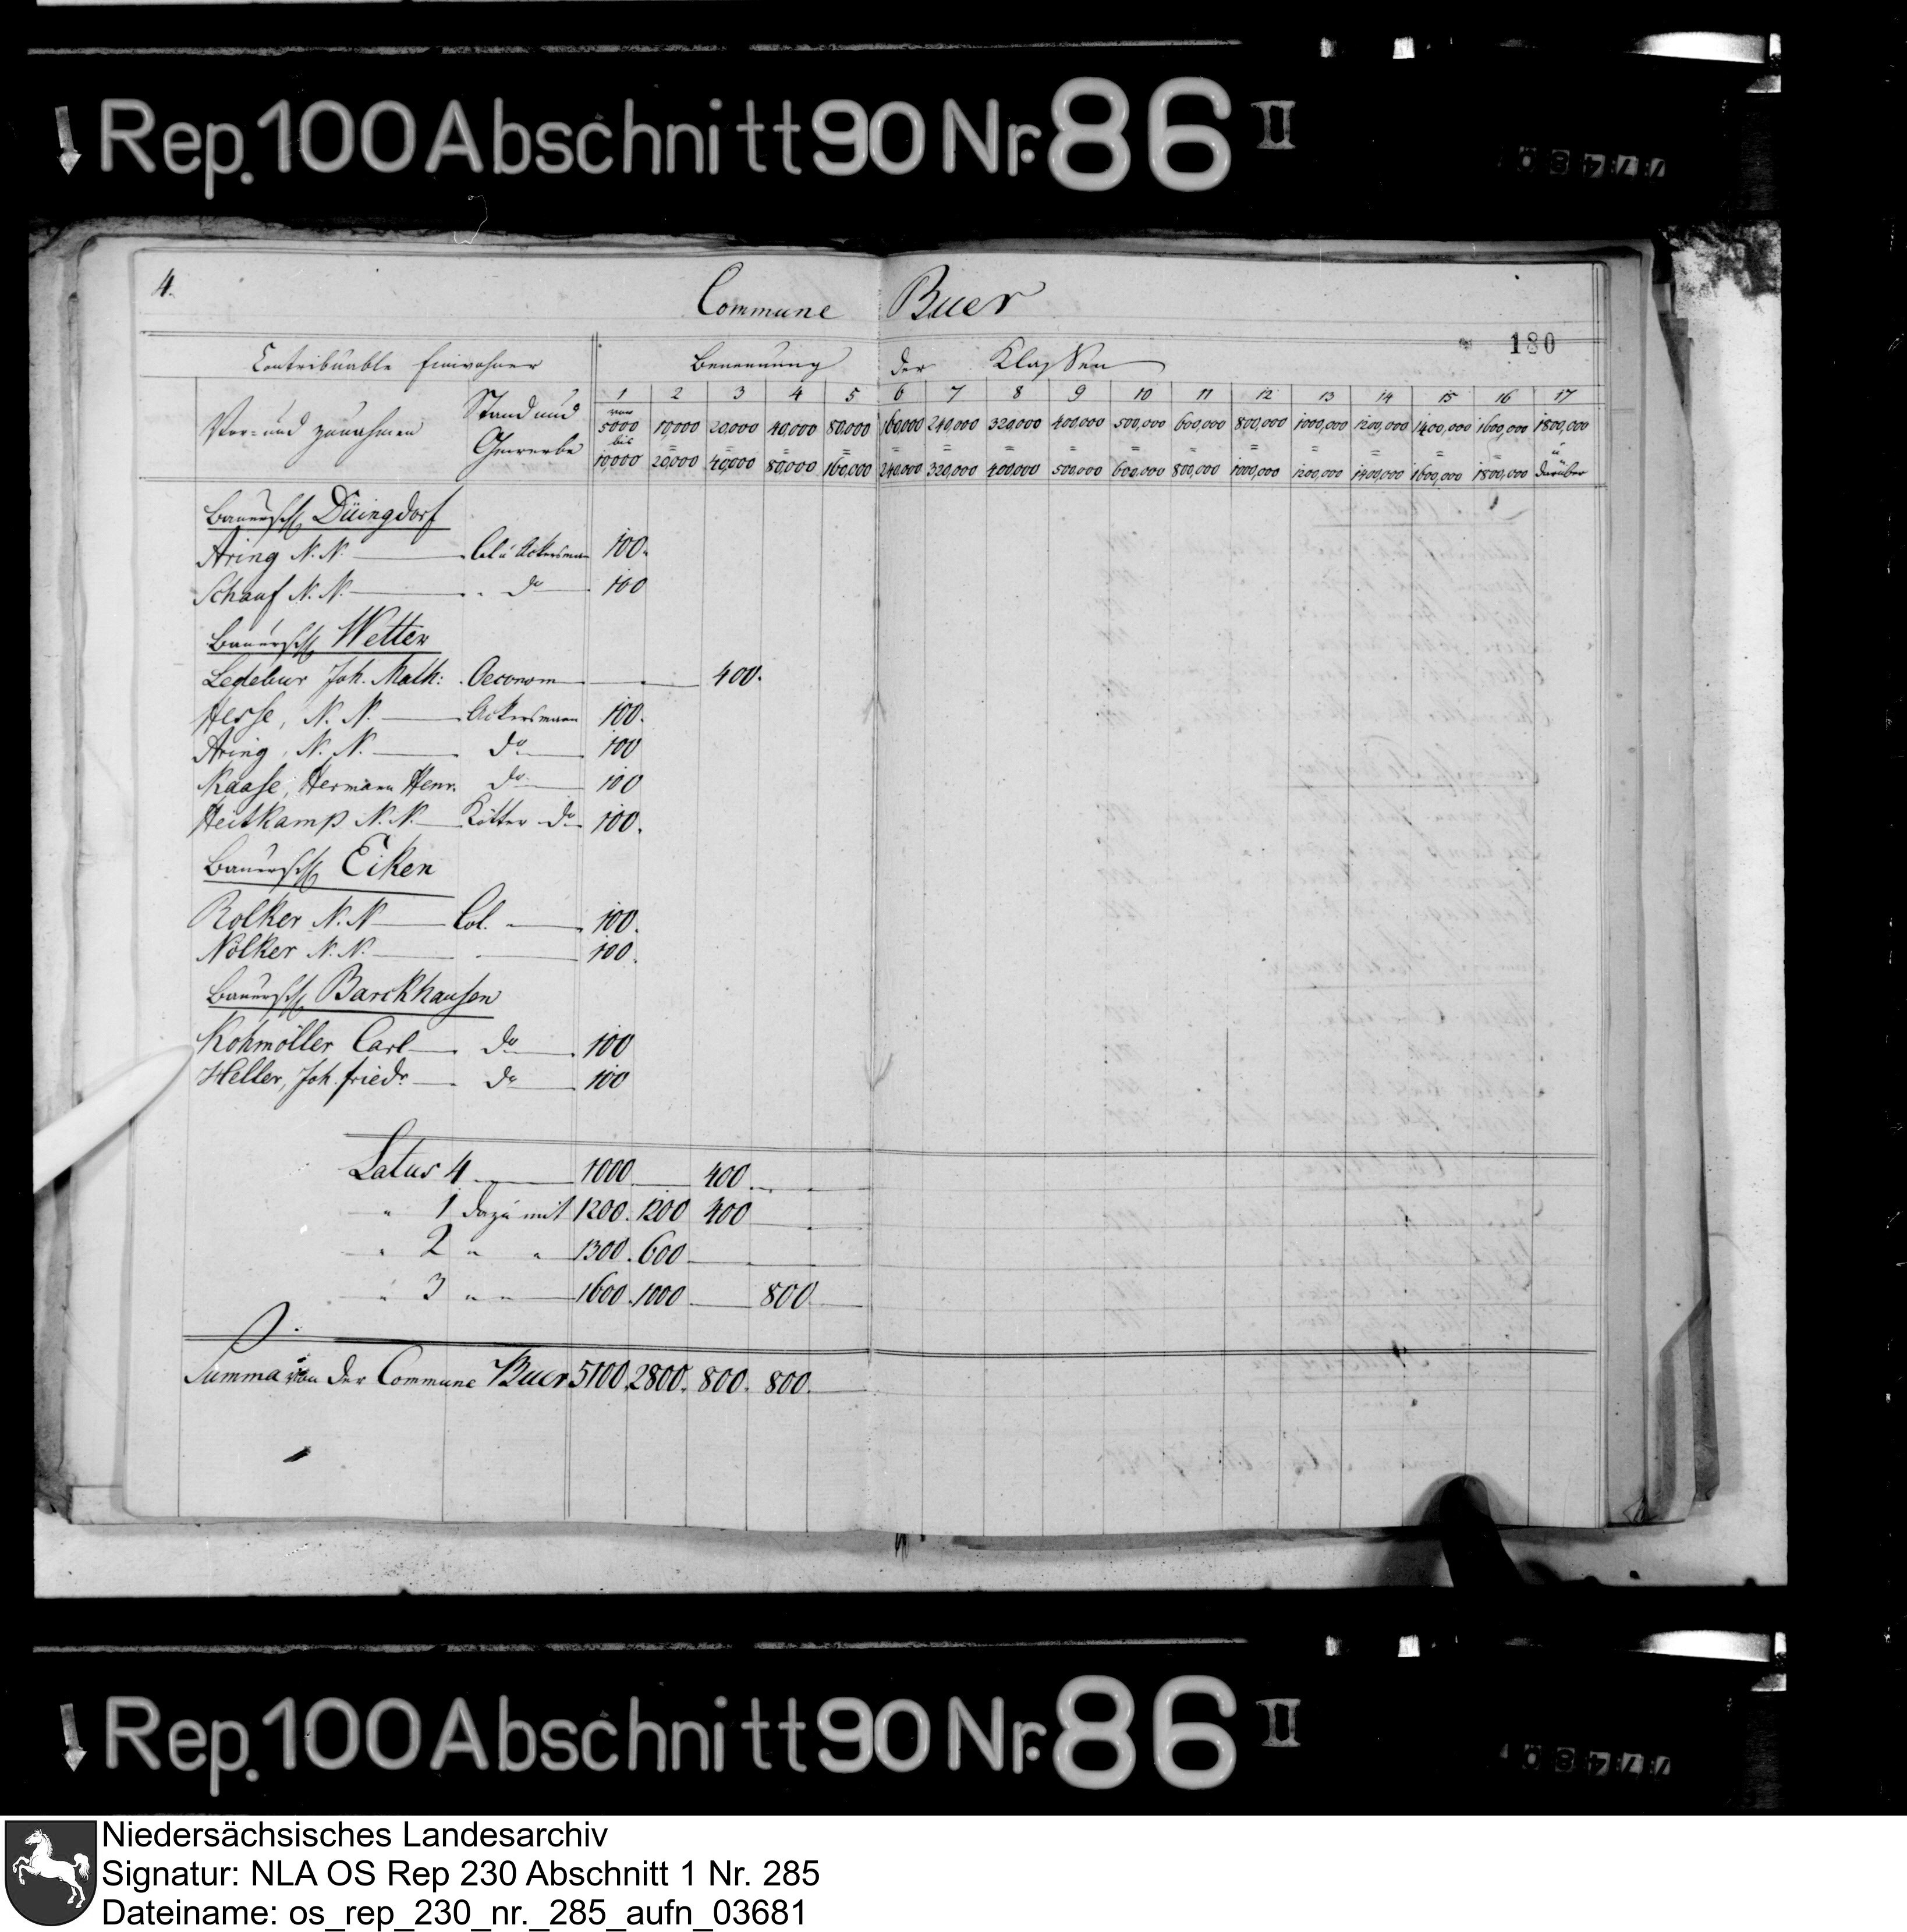 Rep. 100 Abschnitt 90 Nr. 86 II
4.
Commune Buer
180
Contribuable Einwohner
Benennung der Klassen
Vor- und Zunahmen
Stand und Gewerbe
1 2 3 4 5 6 7 8 9 10 11 12 13 14 15 16 17
von 5000 10,000 20,000 40,000 80,000 160,000 240,000 320,000 400,000 500,000 600,000 800,000 1000,000 1200,000 1400,000 1600,000 1800,000
bis = = = = = = = = = = = = = = = u
10000 20,000 40,000 80,000 160,000 240,000 320,000 400,000 500,000 600,000 800,000 1000,000 1200,000 1400,000 1600,000 1800,000 darüber
Bauersch. Düingdorf
Aring N. N. Col u Ackersmann 100.
Schauf N. N. do 100
Bauersch. Wetter
Ledebur Joh. Math: Oeconom 400.
Hesse, N. N. Ackersmann 100.
Aring, N. N. do 100
Kaase, Hermann Henr. do 100
Heitkamp N. N. Kötter do 100.
Bauersch. Eiken
Rolker N. N Col. 100.
Nölker N. N. 100.
Bauersch. Barckhausen
Kohmöller Carl do 100
Heller, Joh. friedr. do 100
Latus 4 1000 400
" 1 dazu mit 1200. 1200 400
" 2 " " 1300. 600
" 3 " " 1600. 1000 800
Summa von der Commune Buer 5100. 2800. 800. 800.
Rep. 100 Abschnitt 90 Nr. 86 II
Niedersächsisches Landesarchiv
Signatur: NLA OS Rep 230 Abschnitt 1 Nr. 285
Dateiname: os_rep_230_nr._285_aufn_03681